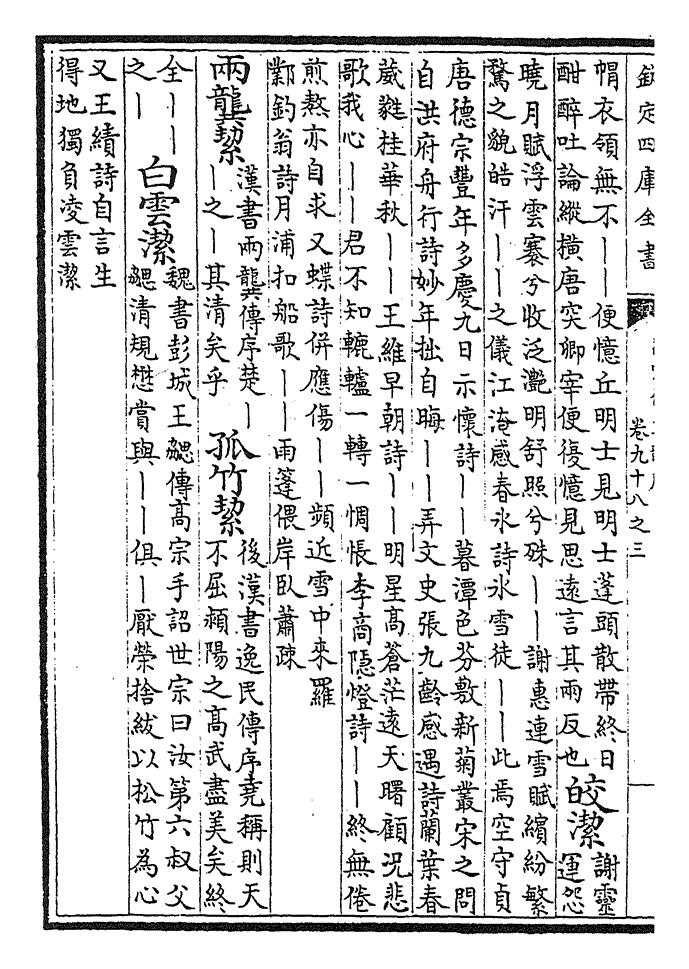 欽定四庫全書
卷九十八之三
帽衣領無不——便憶丘明士見明士蓬頭散帶終日
酣醉吐論縱橫唐突卿宰便復憶見思遠言其兩反也
皎潔
謝靈
運怨
曉月賦浮雲褰兮收泛灧明舒照兮殊——謝惠連雪賦繽紛繁
騖之貌皓汗——之儀江淹感春氷詩氷雪徒——此焉空守貞
唐德宗豐年多慶九日示懷詩——暮潭色芬敷新菊叢宋之問
自洪府舟行詩妙年拙自晦——弄文史張九齡感遇詩蘭葉春
葳蕤桂華秋——王維早朝詩——明星高蒼茫遠天曙顧況悲
歌我心——君不知轆轤一轉一惆悵李商隱燈詩——終無倦
煎熬亦自求又蝶詩併應傷——頻近雪中來羅
鄴釣翁詩月浦扣船歌——雨篷偎岸臥蕭疎
兩龔絜
漢書兩龔傳序楚—
—之—其清矣乎
孤竹絜
後漢書逸民傳序堯稱則天
不屈潁陽之高武盡美矣終
全——
之—
白雲潔
魏書彭城王勰傳高宗手詔世宗曰汝第六叔父
勰清規懋賞與——俱—厭榮捨紱以松竹為心
又王績詩自言生
得地獨負凌雲潔